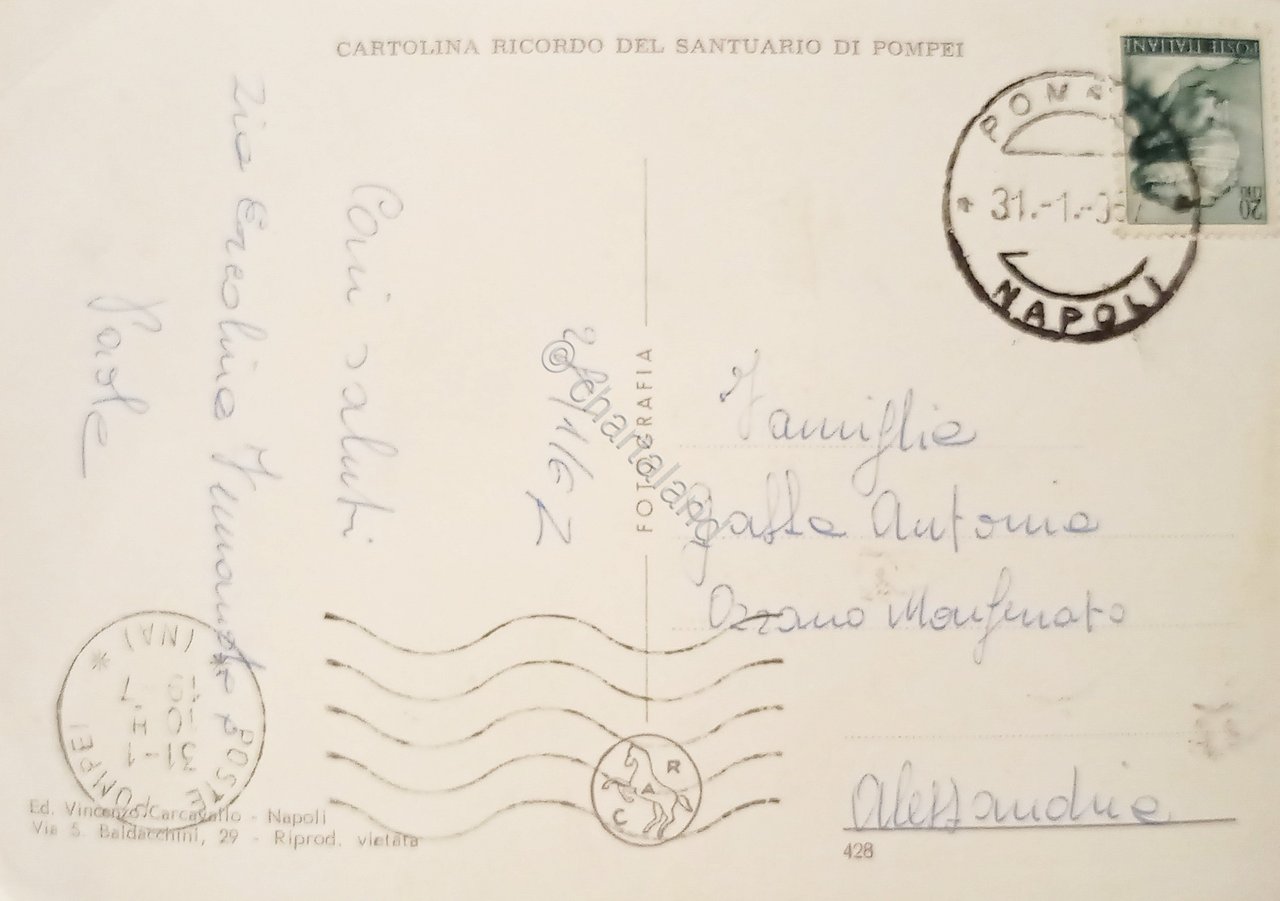 CARTOLINA RICORDO DEL SANTUARIO DI POMPEI
POSTE ITALIANE
20
LIRE
POMPEI
* 31.-1.-
NAPOLI
Cari saluti
Zia Ercolina
Paole
FOTOGRAFIA
© chartaland
Famiglia
Antonio
Ozzano Monferrato
Alessandria
428
POSTE POMPEI
* (NA) *
31-1
10
19
R
A
C
Ed. Vincenzo Carcavallo - Napoli
Via S. Baldacchini, 29 - Riprod. vietata